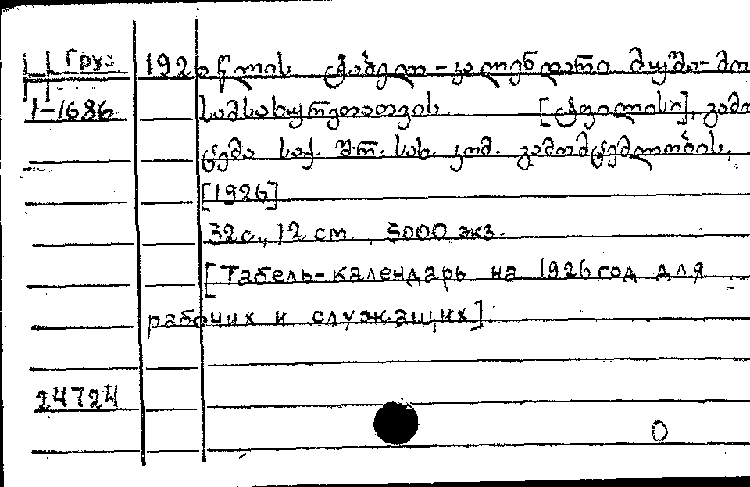 Груз 192 წლის ტაბელ-კალენდარი მუშა-მო
1-1686 სამსახურეთათვის. [ტფილისი], გამო
ცემა საქ. შრ. სახ. კომ. გამომცემლობის,
[1926]
32 с., 12 cm., 5000 экз.
[Табель-календарь на 1926 год для
рабочих и служащих]
24724
0